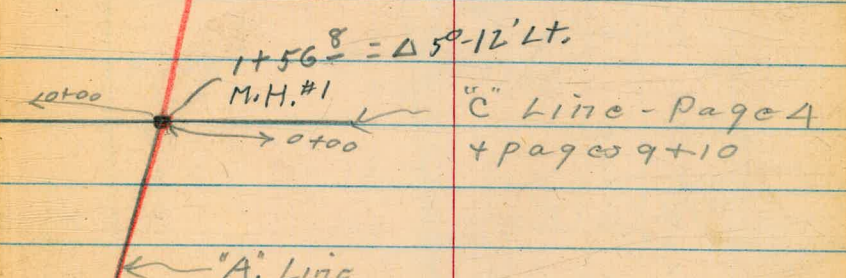 1+56 8 = Δ 5°-12' Lt.
M.H. #1
0+00
"C" Line - Page 4
0+00
+ pages 9+10
"A" Line